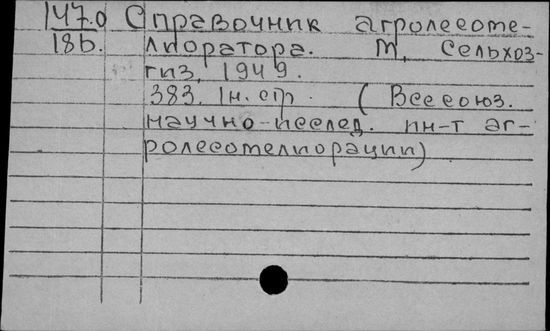 147.0 Справочник агролесоме-
18б. лиоратора. М, Сельхоз-
гиз, 1949.
383. 1н. стр. (Всесоюз.
научно-исслед. ин-т аг-
ролесомелиорации)